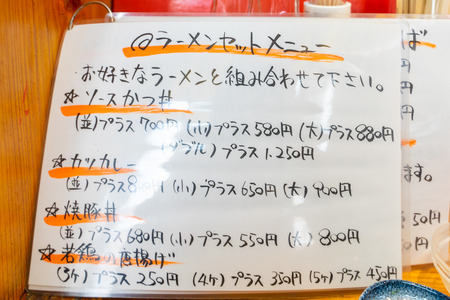 @ラーメンセットメニュー
お好きなラーメンと組み合わせて下さい。
☆ソースかつ丼
(並)プラス700円 (小)プラス580円 (大)プラス880円
(ダブル)プラス1.250円
☆カツカレー
(並)プラス800円 (小)プラス650円 (大)900円
☆焼豚丼
(並)プラス680円 (小)プラス550円 (大)800円
☆若鶏の唐揚げ
(3ヶ)プラス250円 (4ヶ)プラス350円 (5ヶ)プラス450円
ば
円
ます。
50円